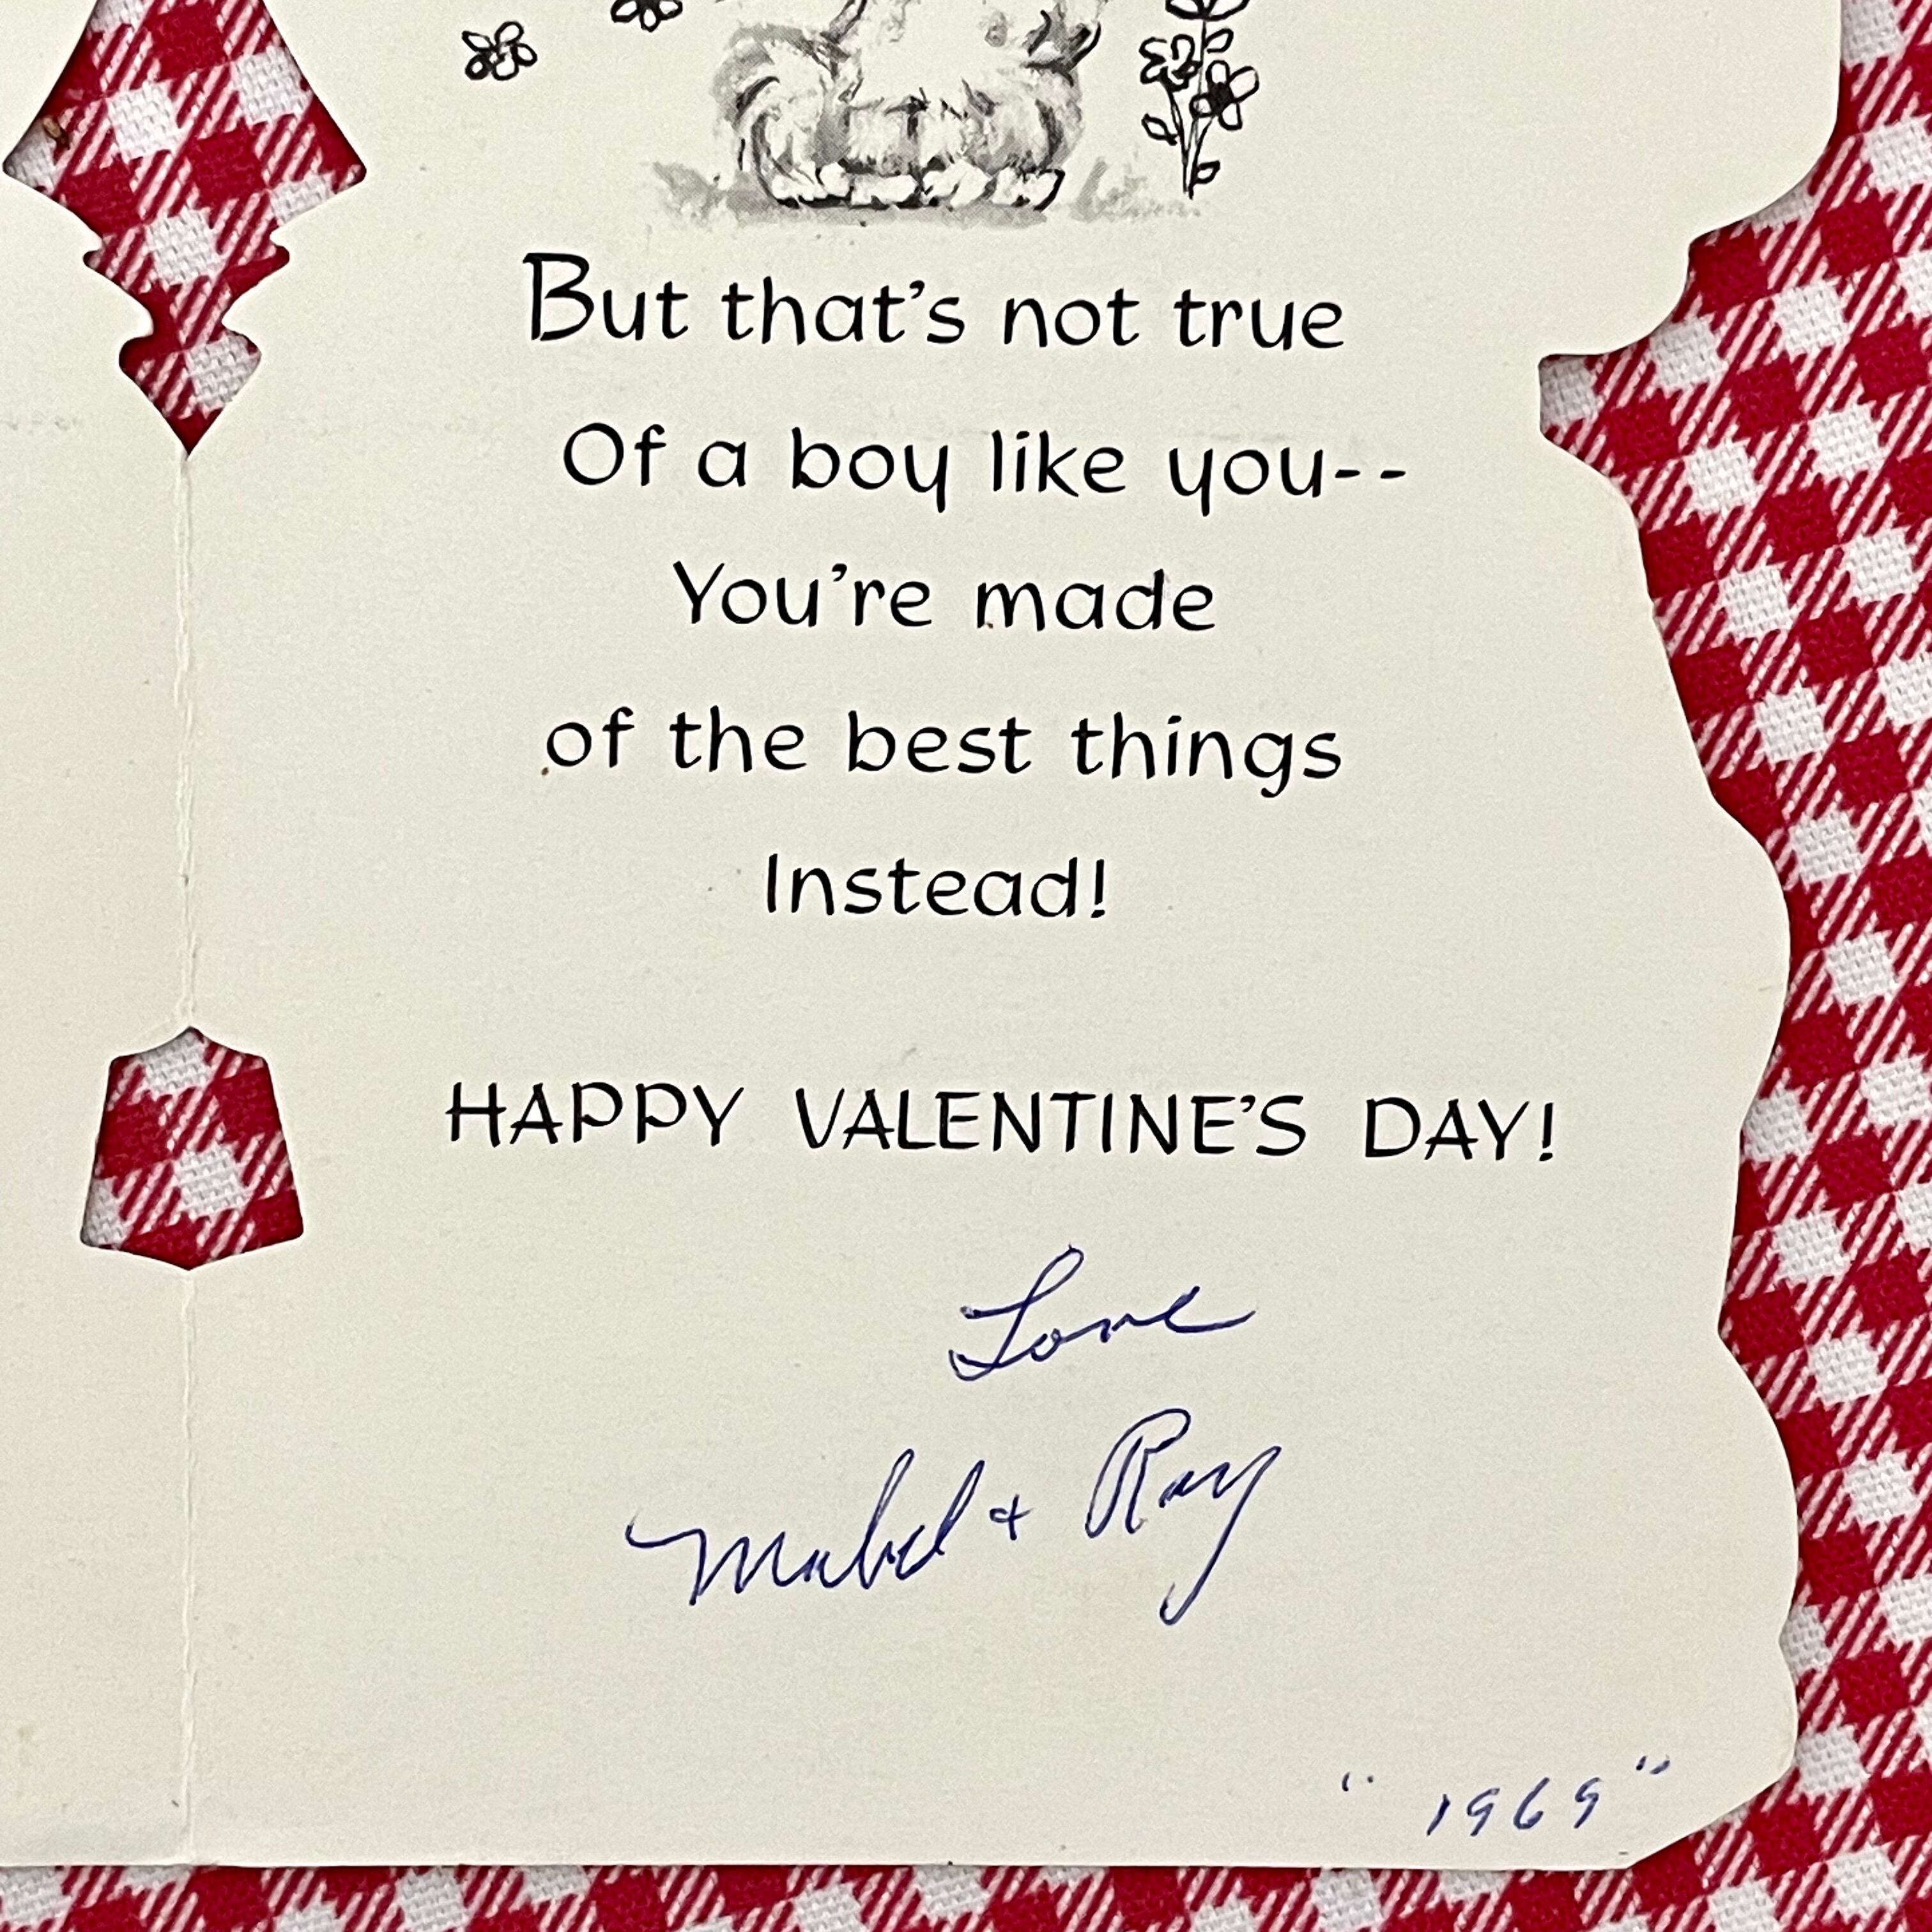 But that's not true
Of a boy like you--
You're made
of the best things
Instead!
HAPPY VALENTINE'S DAY!
Love
Mabel + Ray
"1969"